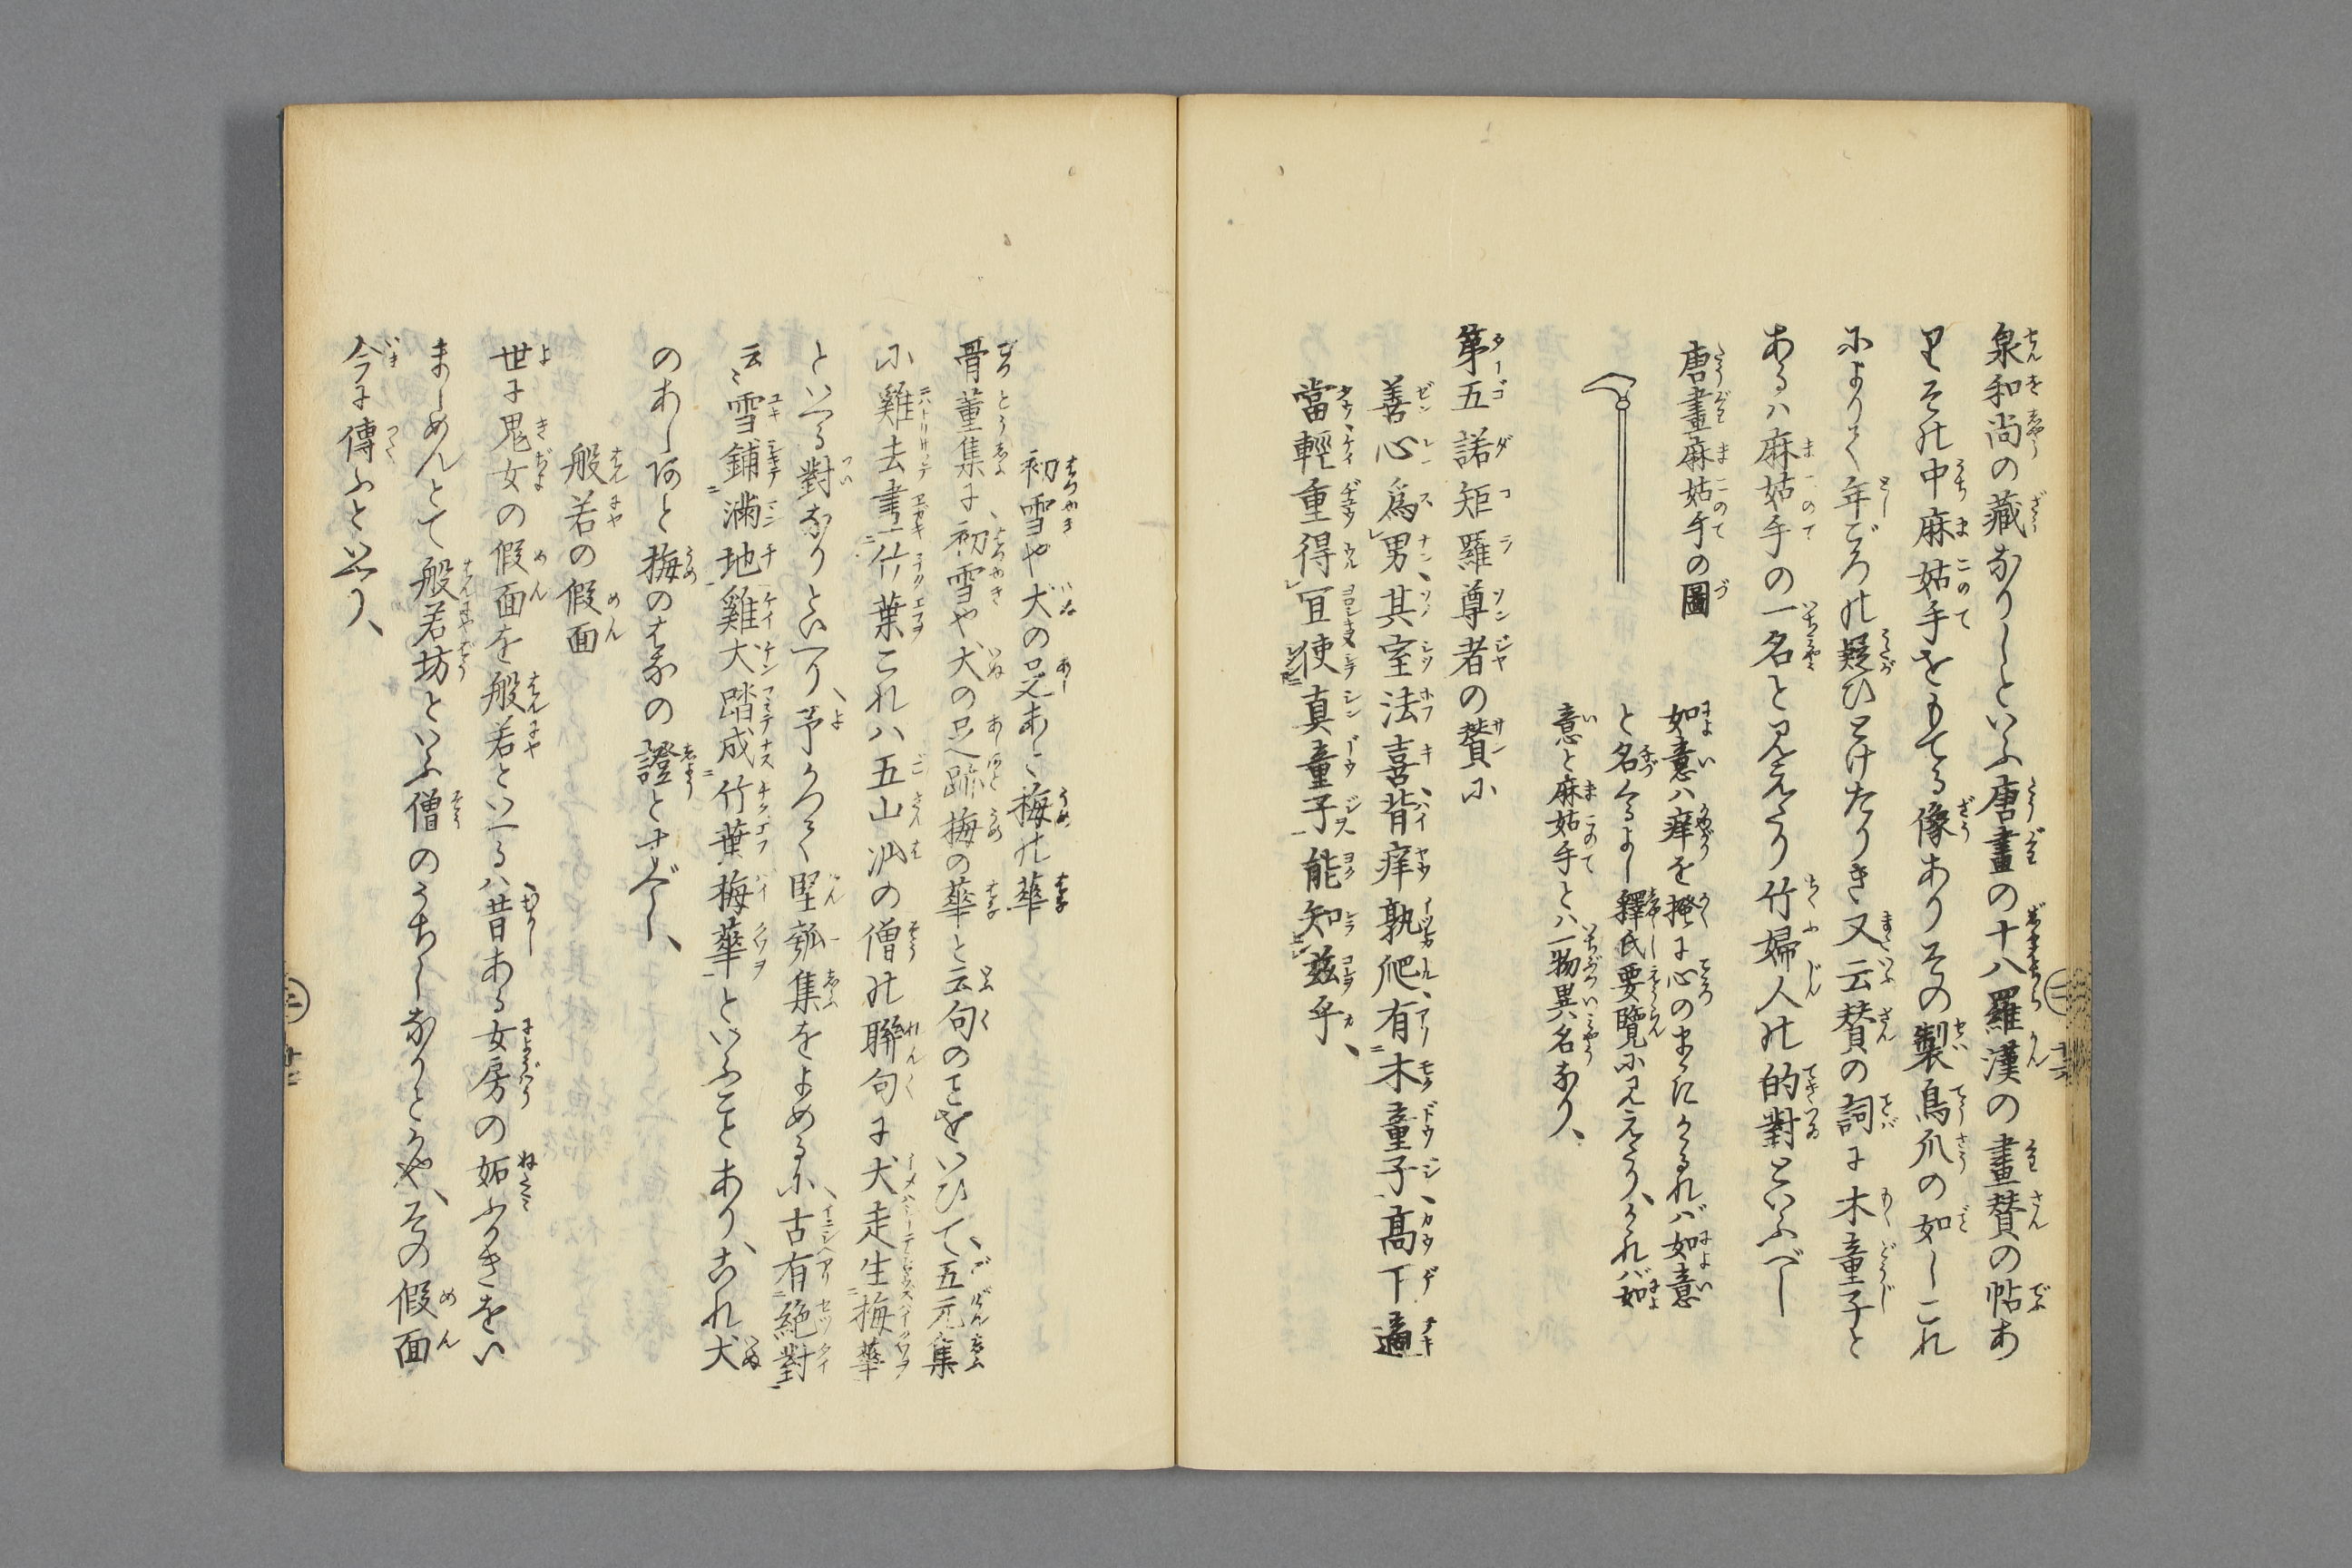 泉和尚の藏なりしといふ唐畫の十八羅漢の畫賛の帖あ
りその中麻姑手をもてる像ありその製鳥爪の如しこれ
によりて年ごろの疑ひとけたりき又云賛の詞に木童子と
あるハ麻姑手の一名と見えたり竹婦人の的對といふべし
唐畫麻姑手の圖
如意ハ痒を掻に心のまゝにかゝれバ如意
と名くるよし釋氏要覽に見えたり、かゝれバ如
意と麻姑手とハ一物異名なり、
第五諾矩羅尊者の賛に
善心爲男、其室法喜、背痒孰爬、有木童子、高下適
當輕重得冝使真童子能知茲乎、
初雪や犬の足あと梅の華
骨董集に、初雪や、犬の足跡梅の華と云句のことをいひて、五元集
に雞去畫竹葉これハ五山派の僧の聯句に犬走生梅華
といへる對なりといへり、予かつて堅瓠集をよめるに、古有絶對
云雪鋪滿地雞犬踏成竹葉梅華といふことあり、これ犬
のあしあとと梅のはなの證とすべし、
般若の假面
世に鬼女の假面を般若といへるハ昔ある女房の妬ふかきをい
ましめんとて般若坊といふ僧のうちしなりとかや、その假面
今に傳ふといへり、